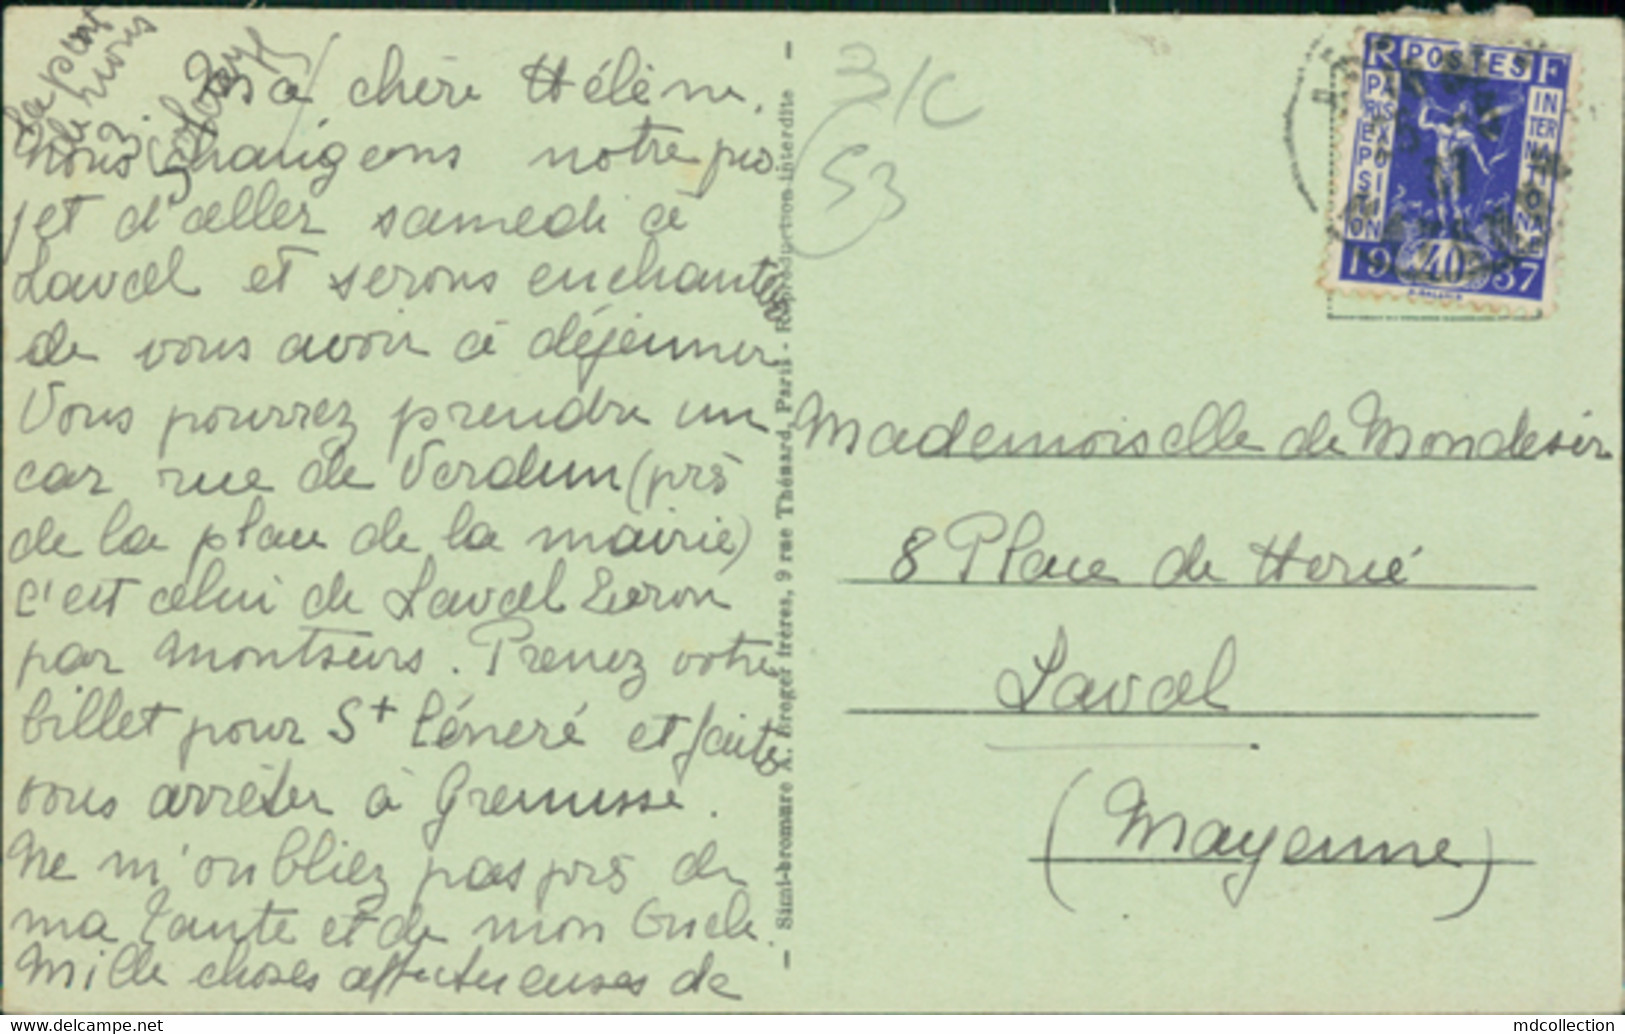 Ma chère Hélène,
nous changeons notre pro
jet d'aller samedi à
Laval et serons enchantés
de vous avoir à déjeuner
Vous pourrez prendre un
car rue de Verdun (près
de la place de la mairie)
c'est celui de Laval Evron
par Montsurs. Prenez votre
billet pour St Céneré et faites
vous arrêter à Gremusse.
Ne m'oubliez pas près de
ma Tante et de mon Oncle.
Mille choses affectueuses de
la part
de nous
3.
3/C
53
- Simi-bromure A. Breger frères, 9 rue Thénard, Paris - Reproduction interdite -
RF POSTES
PARIS EXPOSITION INTERNATIONALE
1937
40
Mademoiselle de Mondesir
8 Place de Hercé
Laval
(Mayenne)
mdcollection
www.delcampe.net